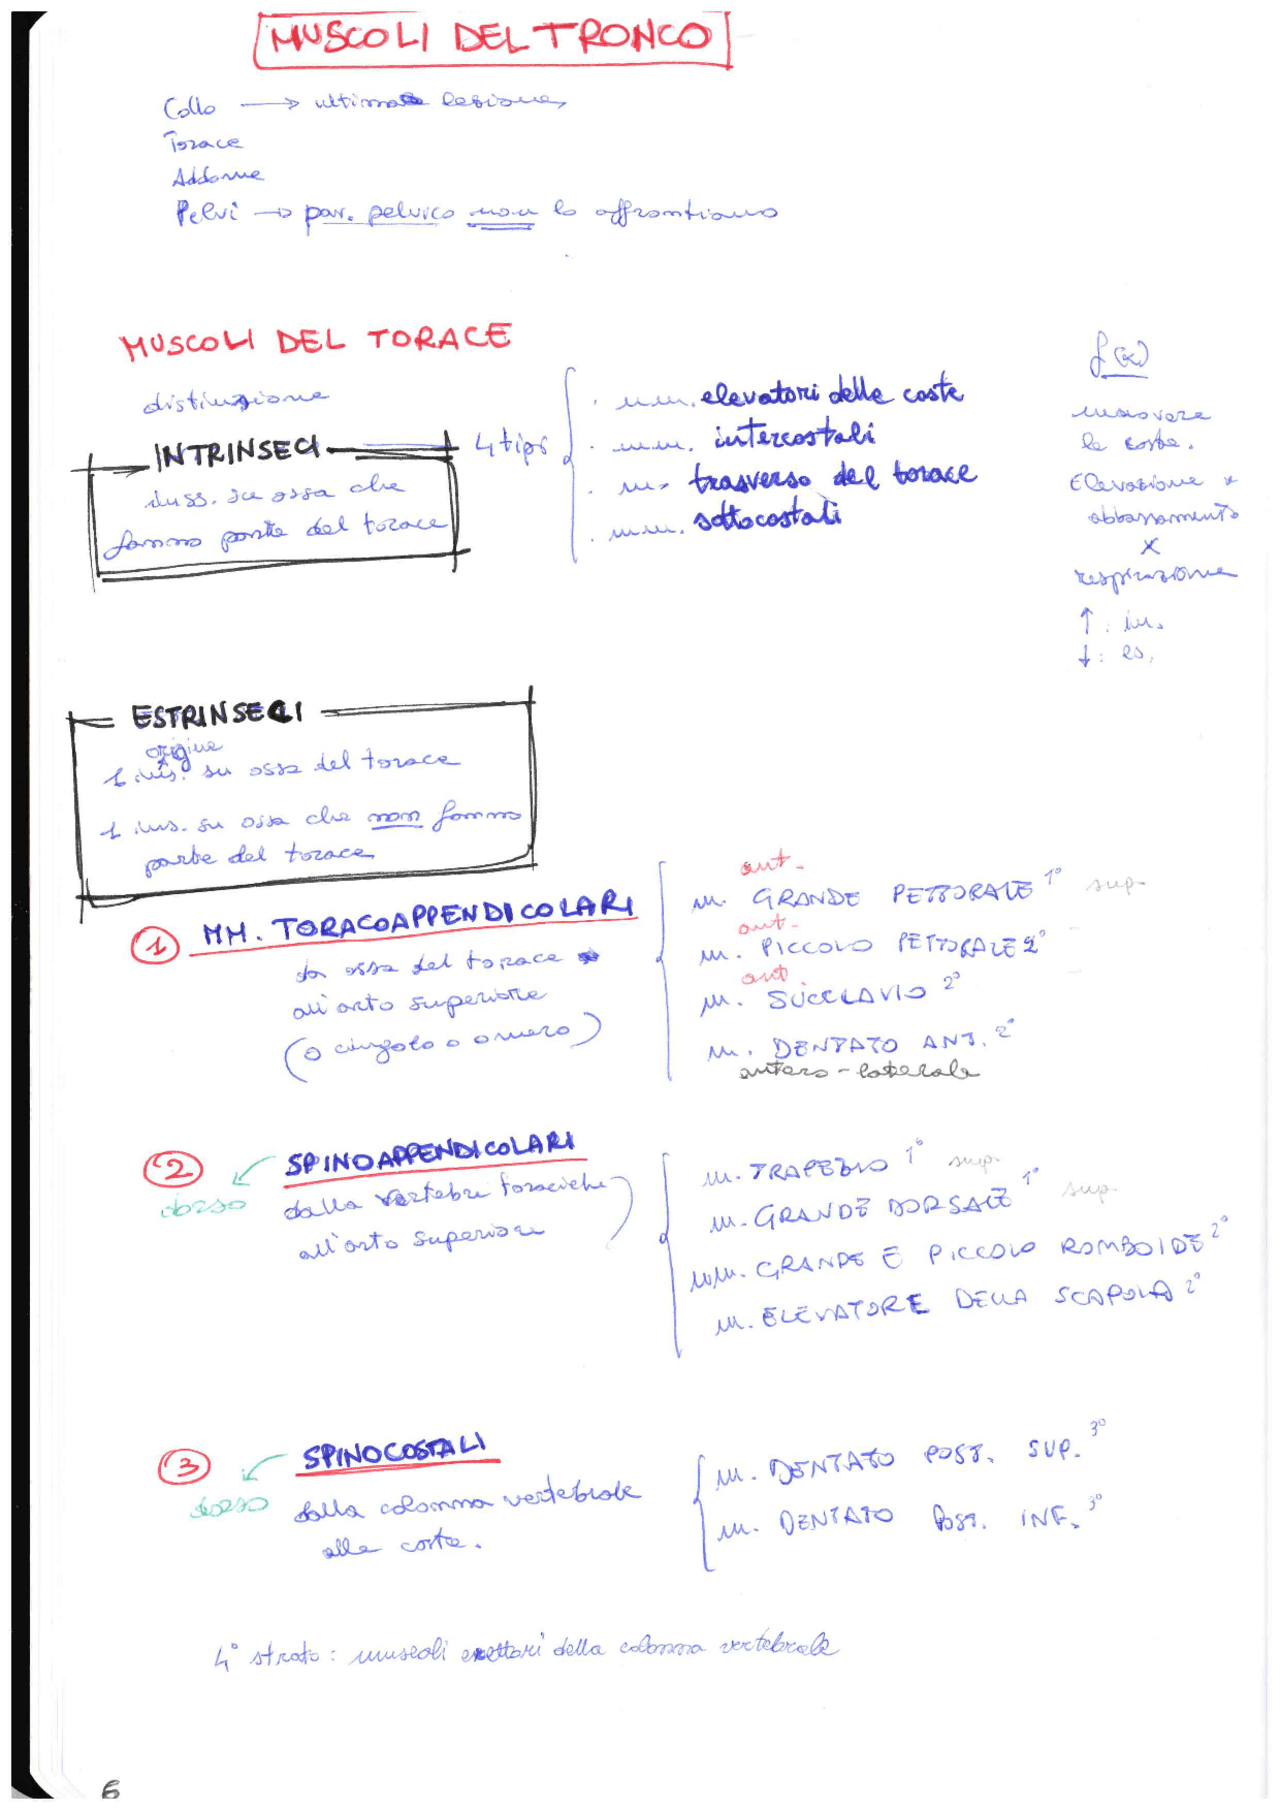 MUSCOLI DEL TRONCO
Collo → ultima lezione
Torace
Addome
Pelvi → pav. pelvico non lo affrontiamo
MUSCOLI DEL TORACE
distinzione
INTRINSECI
inss. su ossa che
fanno parte del torace
4 tipi
. mm. elevatori delle coste
. mm. intercostali
. m. trasverso del torace
. mm. sottocostali
f(x)
muovere
le coste.
Elevazione e
abbassamento
x
respirazione
↑ : in.
↓ : es.
ESTRINSECI
origine
1 ins. su ossa del torace
1 ins. su ossa che non fanno
parte del torace
1 MM. TORACOAPPENDICOLARI
da ossa del torace
all'arto superiore
(o cingolo o omero)
ant.
m. GRANDE PETTORALE 1° sup.
ant.
m. PICCOLO PETTORALE 2°
ant.
m. SUCCLAVIO 2°
m. DENTATO ANT. 2°
antero-laterale
2 SPINOAPPENDICOLARI
dorso
dalla vertebre toraciche
all'arto superiore
m. TRAPEZIO 1° sup.
m. GRANDE DORSALE 1° sup.
mm. GRANDE E PICCOLO ROMBOIDE 2°
m. ELEVATORE DELLA SCAPOLA 2°
3 SPINOCOSTALI
dorso
dalla colonna vertebrale
alle coste.
m. DENTATO POST. SUP. 3°
m. DENTATO POST. INF. 3°
4° strato : muscoli erettori della colonna vertebrale
6